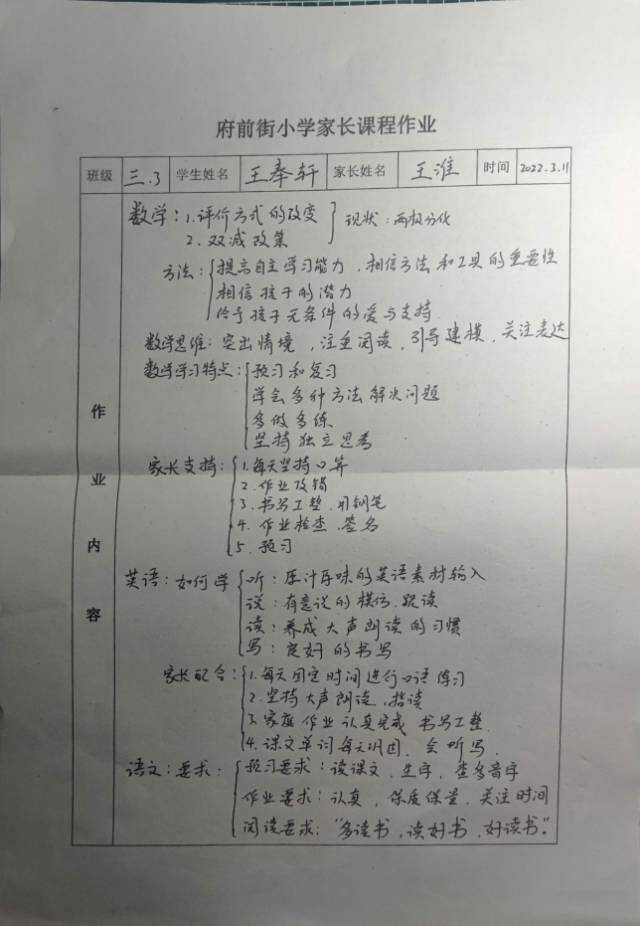 府前街小学家长课程作业
班级 三.3 学生姓名 王奉轩 家长姓名 王淮 时间 2022.3.11
作业内容
数学：1.评价方式的改变
2.双减政策
现状：两极分化
方法：提高自主学习能力，相信方法和工具的重要性
相信孩子的潜力
给予孩子无条件的爱与支持
数学思维：突出情境，注重阅读，引导建模，关注表达
数学学习特点：预习和复习
学会多种方法解决问题
多做多练
坚持独立思考
家长支持：1.每天坚持口算
2.作业改错
3.书写工整.用钢笔
4.作业检查.签名
5.预习
英语：如何学 听：原汁原味的英语素材输入
说：有意识的模仿.跟读
读：养成大声朗读的习惯
写：良好的书写
家长配合：1.每天固定时间进行口语练习
2.坚持大声朗读、指读
3.家庭作业认真完成 书写工整
4.课文单词每天巩固、会听写.
语文：要求：预习要求：读课文、生字、查多音字
作业要求：认真，保质保量，关注时间
阅读要求："多读书，读好书，好读书."